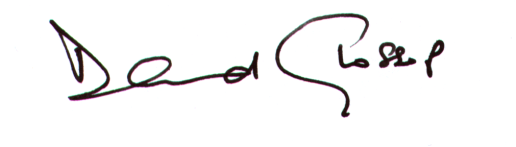 David Glossop